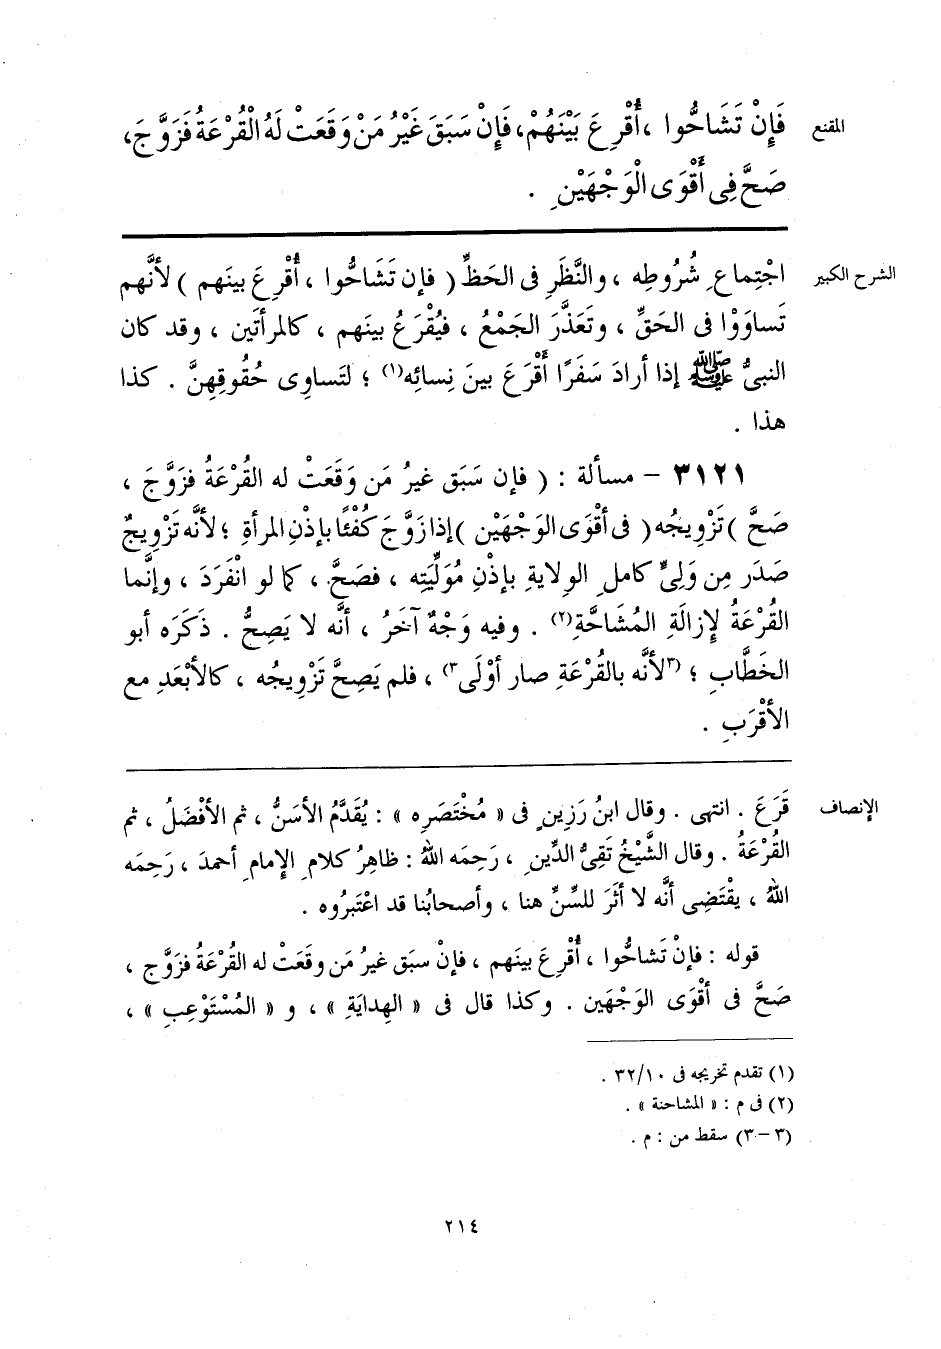 المقنع
فَإِنْ تَشَاحُّوا ، أُقْرِعَ بَيْنَهُمْ، فَإِنْ سَبَقَ غَيْرُ مَنْ وَقَعَتْ لَهُ الْقُرْعَةُ فَزَوَّجَ،
صَحَّ فِى أَقْوَى الْوَجْهَيْنِ .
الشرح الكبير
اجْتِماعِ شُرُوطِه ، والنَّظَرِ فى الحَظِّ ( فإن تَشَاحُّوا ، أُقْرِعَ بينَهم ) لأنَّهم
تَساوَوْا فى الحَقِّ ، وتَعذَّرَ الجَمْعُ ، فيُقْرَعُ بينَهم ، كالمرأتَين ، وقد كان
النبىُّ ﷺ إذا أرادَ سَفَرًا أقْرَعَ بينَ نِسائِه(١) ؛ لتَساوِى حُقُوقِهِنَّ . كذا
هذا .
٣١٢١ – مسألة : ( فإن سَبَق غيرُ مَن وَقَعَتْ له القُرْعَةُ فزَوَّجَ ،
صَحَّ ) تَزْوِيجُه ( فى أقْوَى الوَجْهَيْن ) إذا زَوَّجَ كُفْئًا بإذْنِ المرأةِ ؛ لأنَّه تَزْوِيجٌ
صَدَر مِن وَلِىٍّ كاملِ الوِلايةِ بإذْنِ مُوَلِّيَتِه ، فصَحَّ ، كما لو انْفَرَدَ ، وإنَّما
القُرْعَةُ لإزالَةِ المُشَاحَّةِ(٢) . وفيه وَجْهٌ آخَرُ ، أنَّه لا يَصِحُّ . ذَكَرَه أبو
الخَطَّابِ ؛ (٣لأنَّه بالقُرْعَةِ صار أوْلَى٣) ، فلم يَصِحَّ تَزْوِيجُه ، كالأبْعَدِ مع
الأقْرَبِ .
الإنصاف
قَرَعَ . انتهى . وقال ابنُ رَزِينٍ فى « مُخْتَصَرِه » : يُقَدَّمُ الأسَنُّ ، ثم الأفْضَلُ ، ثم
القُرْعَةُ . وقال الشَّيْخُ تَقِىُّ الدِّينِ ، رَحِمَه اللهُ : ظاهِرُ كلامِ الإمامِ أحمدَ ، رَحِمَه
اللهُ ، يقْتَضِى أنَّه لا أثَرَ للسِّنِّ هنا ، وأصحابُنا قد اعْتَبرُوه .
قوله : فإنْ تَشاحُّوا ، أُقْرِعَ بينَهم ، فإنْ سبَق غيرُ مَن وقَعَتْ له القُرْعَةُ فزَوَّج ،
صَحَّ فى أقْوَى الوَجْهَين . وكذا قال فى « الهِدايَةِ » ، و « المُسْتَوْعِبِ » ،
(١) تقدم تخريجه فى ٣٢/١٠ .
(٢) فى م : « المشاحنة » .
(٣ – ٣) سقط من : م .
٢١٤